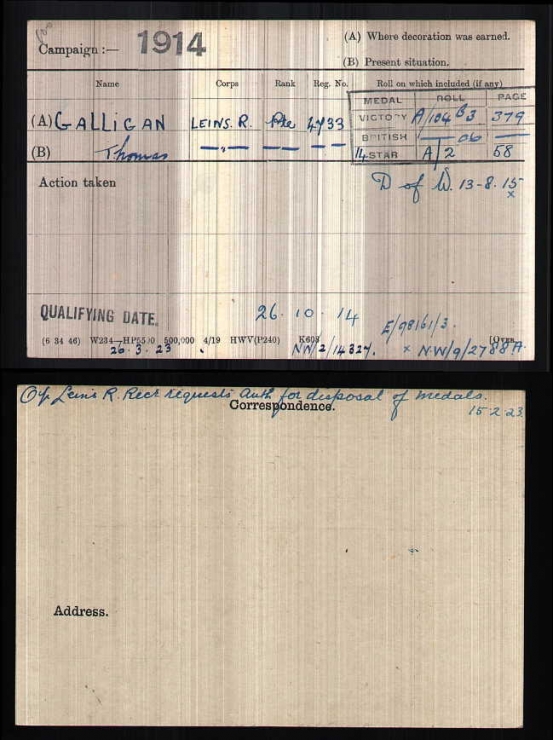 Campaign :— 1914
(A) Where decoration was earned.
(B) Present situation.
Name Corps Rank Reg. No. Roll on which included (if any)
MEDAL ROLL PAGE
(A) GALLIGAN LEINS. R. Pte 4733 VICTORY A/104 B3 379
BRITISH —„— do —„—
(B) Thomas —„— —„— 14 STAR A/2 58
Action taken D of W. 13-8-15
x
QUALIFYING DATE. 26. 10. 14
E/98161/3.
(6 34 46) W234—HP5590 500,000 4/19 HWV(P240) K608 [Over.
26. 3. 23 NW/2/14327. x NW/9/2788A.
O/c Leins R. Rect requests auth for disposal of medals.
Correspondence. 15 2 23
Address.